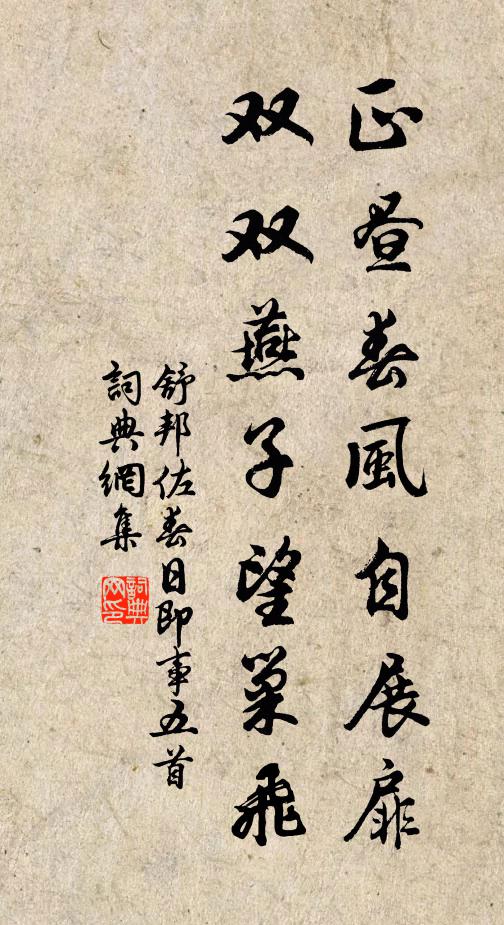 正昼春風自展扉
双双燕子望巢飛
舒邦佐春日即事五首
詞典網集
詞典
网印